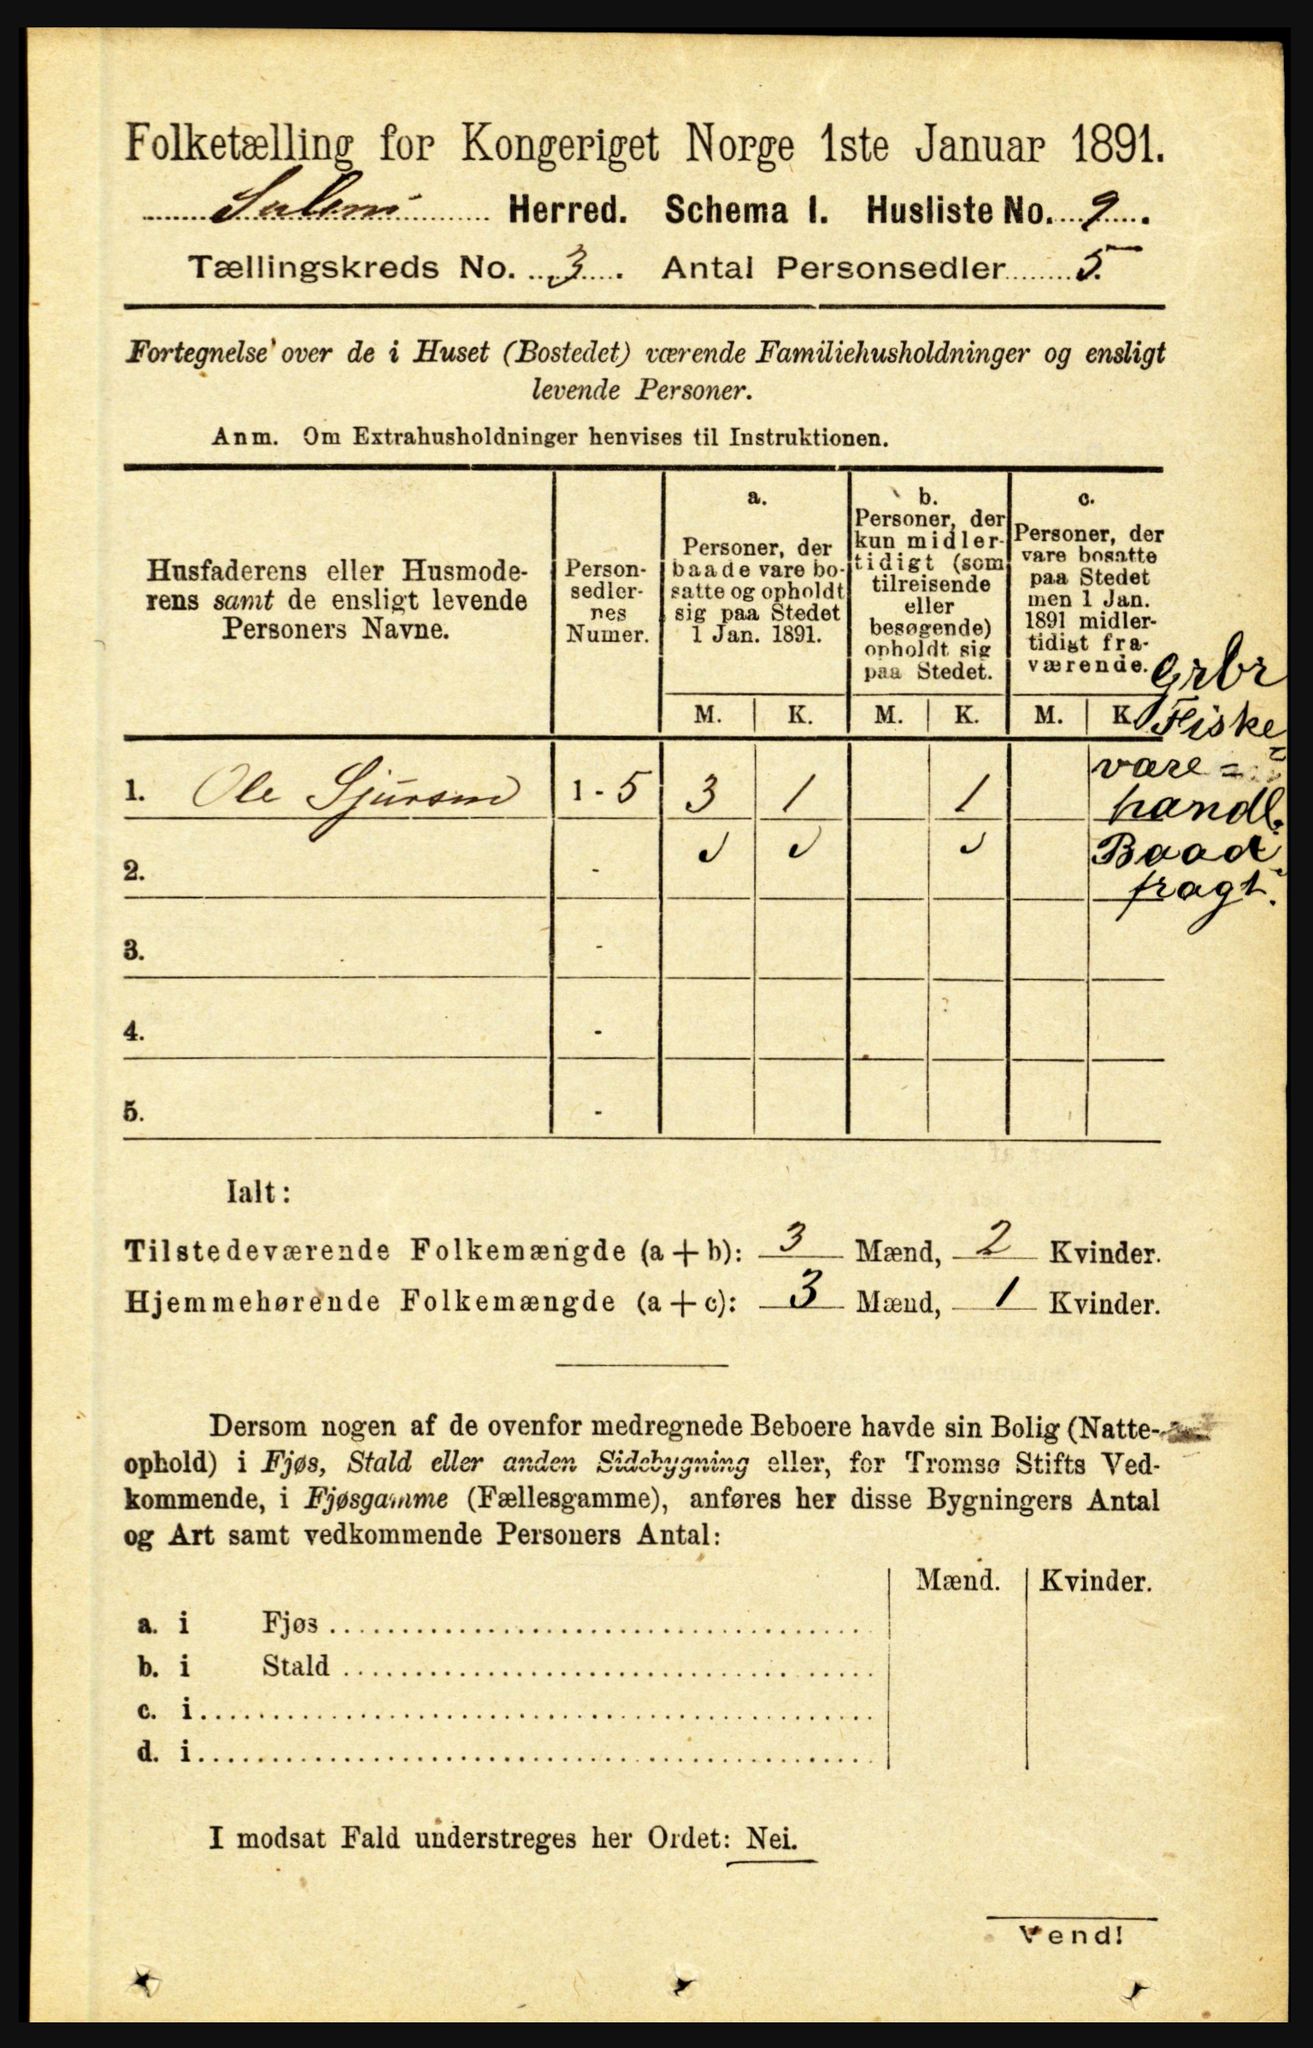 Folketælling for Kongeriget Norge 1ste Januar 1891.
Sulens Herred. Schema I. Husliste No. 9.
Tællingskreds No. 3. Antal Personsedler 5.
Fortegnelse over de i Huset (Bostedet) værende Familiehusholdninger og ensligt
levende Personer.
Anm. Om Extrahusholdninger henvises til Instruktionen.
Husfaderens eller Husmode-
rens samt de ensligt levende
Personers Navne.
Person-
sedler-
nes
Numer.
a.
Personer, der
baade vare bo-
satte og opholdt
sig paa Stedet
1 Jan. 1891.
b.
Personer, der
kun midler-
tidigt (som
tilreisende
eller
besøgende)
opholdt sig
paa Stedet.
c.
Personer, der
vare bosatte
paa Stedet
men 1 Jan.
1891 midler-
tidigt fra-
værende.
M. K. M. K. M. K.
Grbr
Fiske
vare-
handl.
Baad
fragt.
1. Ole Sjursen 1 - 5 3 1 1
2. -
3. -
4. -
5. -
Ialt:
Tilstedeværende Folkemængde (a + b): 3 Mænd, 2 Kvinder.
Hjemmehørende Folkemængde (a + c): 3 Mænd, 1 Kvinder.
Dersom nogen af de ovenfor medregnede Beboere havde sin Bolig (Natte-
ophold) i Fjøs, Stald eller anden Sidebygning eller, for Tromsø Stifts Ved-
kommende, i Fjøsgamme (Fællesgamme), anføres her disse Bygningers Antal
og Art samt vedkommende Personers Antal:
Mænd. Kvinder.
a. i Fjøs
b. i Stald
c. i
d. i
I modsat Fald understreges her Ordet: Nei.
Vend!